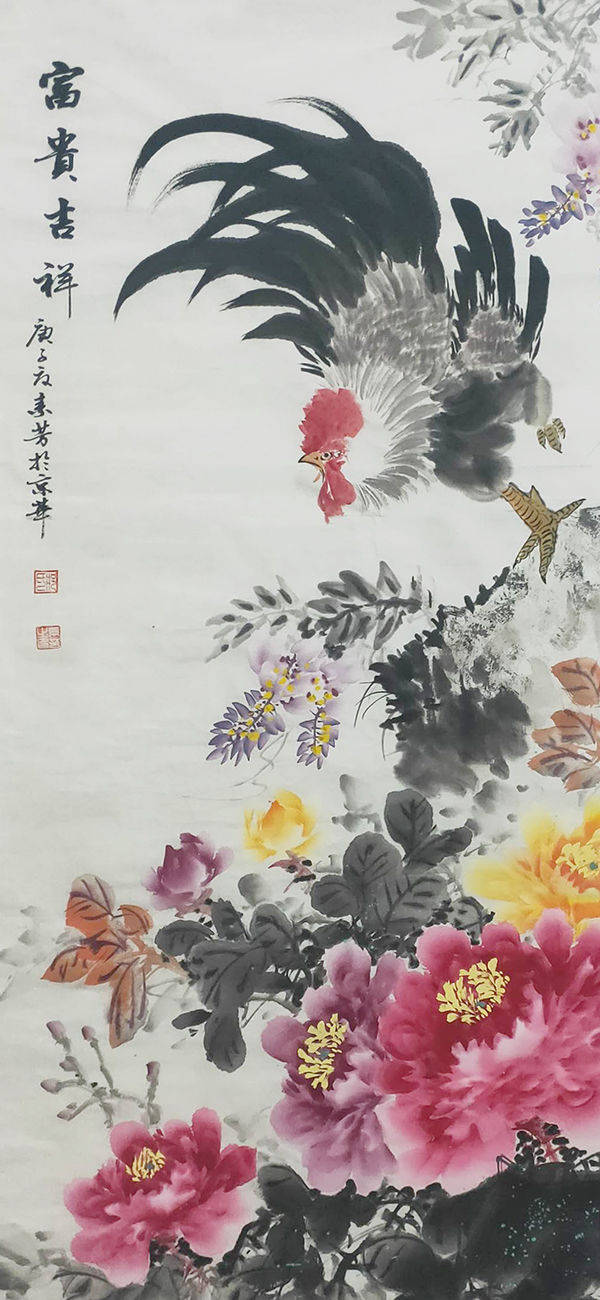 富貴吉祥
庚子夏素芳於京華